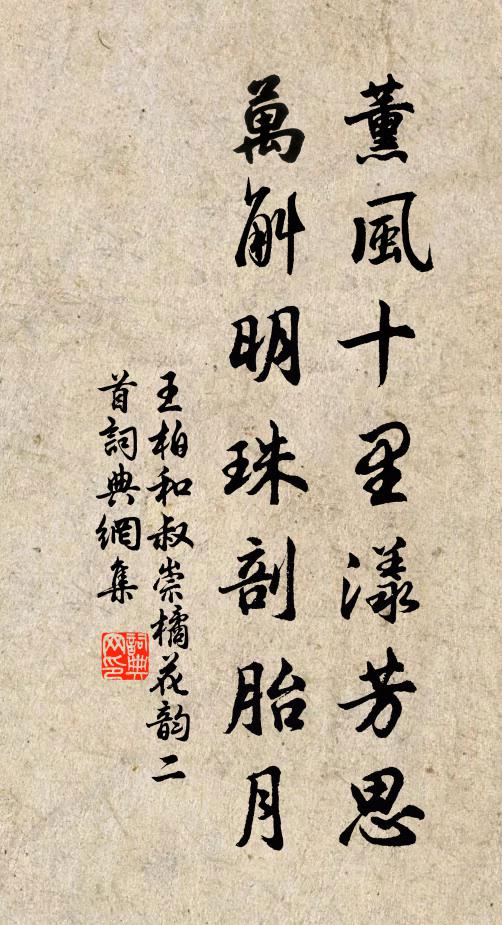 薰風十里漾芳思
萬斛明珠剖胎月
王柏和叔崇橘花韵二
首詞典網集
詞典
网印